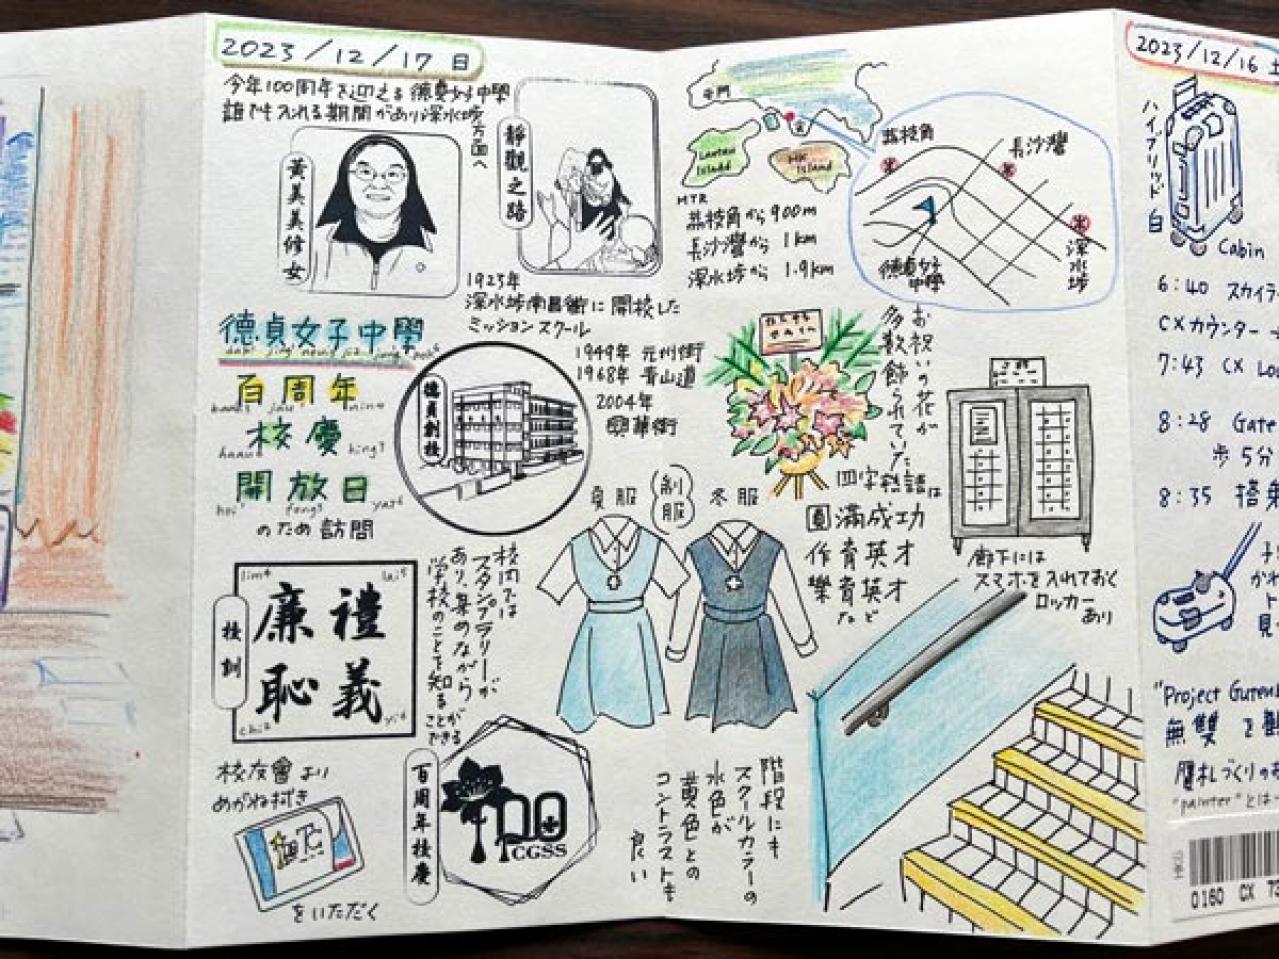 2023/12/17 日
今年100周年を迎える 德貞女子中學
誰でも入れる期間があり深水埗方面へ
黃美美修女
靜觀之路
1923年
深水埗南昌街に開校した
ミッションスクール
1949年 元州街
1968年 青山道
2004年
興華街
德貞女子中學
百周年
校慶
開放日
のため訪問
德貞創校
屯門
Lantau Island
HK Island
MTR
荔枝角から 900m
長沙灣から 1km
深水埗から 1.9km
荔枝角
長沙灣
深水埗
德貞女子中學
お祝いの花が
多数飾られていた
四字熟語は
圓滿成功
作育英才
樂育英才
など
夏服
制服
冬服
廊下には
スマホを入れておく
ロッカー
あり
校訓
lim4
lai5
廉 禮
恥 義
chi2
yi6
校内では
スタンプラリーが
あり、集めながら
学校のことを知る
ことが
できる
校友會より
めがね拭き
をいただく
百周年校慶
CGSS
階段にも
スクールカラーの
水色が
黄色との
コントラストも
良い
2023/12/16 土
ハイブリッド
白
Cabin
6:40 スカイラ
CXカウンター
7:43 CX Lou
8:28 Gate
歩5分
8:35 搭乗
"Project Gutenb
無雙 を観
贋札づくりのお
"painter"とは
HKG
0160 CX 73